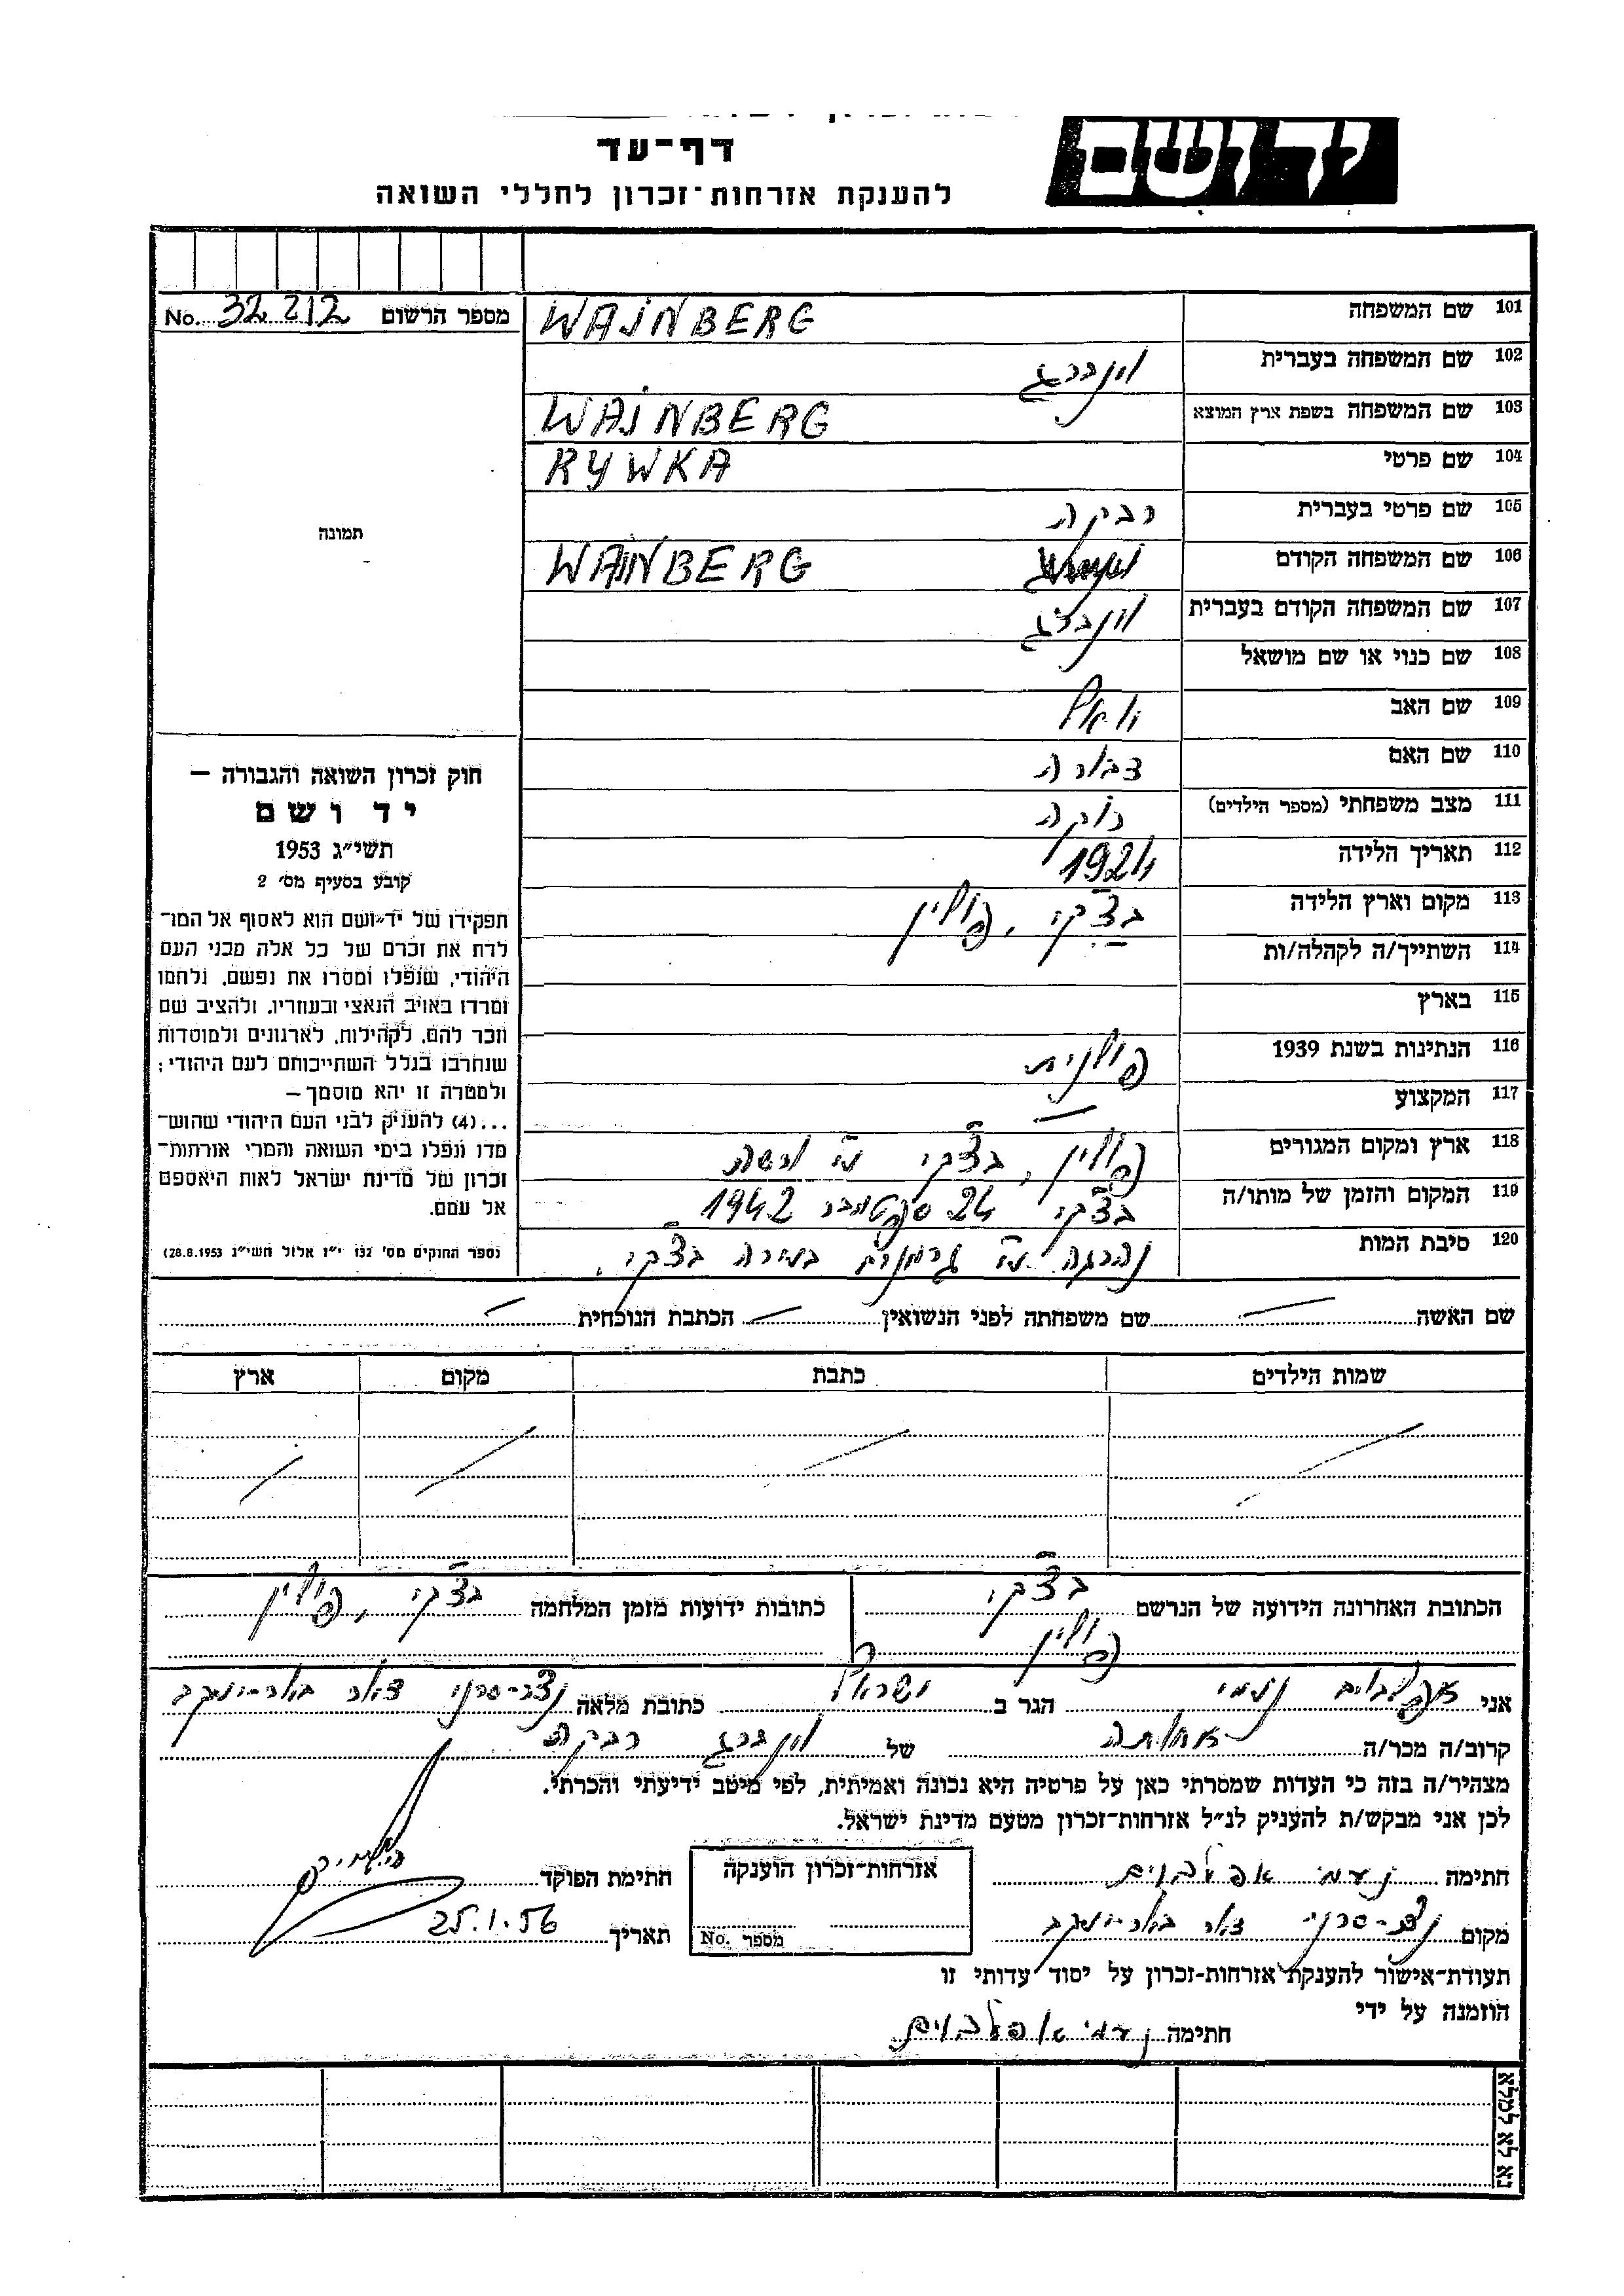 יד ושם
דף־עד
להענקת אזרחות־זכרון לחללי השואה
מספר הרשום No. 32212
101 שם המשפחה WAJNBERG
102 שם המשפחה בעברית וינברג
103 שם המשפחה בשפת ארץ המוצא WAJNBERG
104 שם פרטי RYWKA
105 שם פרטי בעברית רבקה
106 שם המשפחה הקודם WAJNBERG
107 שם המשפחה הקודם בעברית וינברג
108 שם כנוי או שם מושאל
109 שם האב
110 שם האם דבורה
111 מצב משפחתי (מספר הילדים) רוקה
112 תאריך הלידה 1924
113 מקום וארץ הלידה פולין
114 השתייך/ה לקהלה/ות
115 בארץ
116 הנתינות בשנת 1939 פולנית
117 המקצוע –
118 ארץ ומקום המגורים פולין, ע"י ורשה
119 המקום והזמן של מותו/ה 24 ספטמבר 1942
120 סיבת המות נהרגה ע"י גרמנים ביריה
תמונה
חוק זכרון השואה והגבורה —
יד ושם
תשי״ג 1953
קובע בסעיף מס׳ 2
תפקידו של יד־ושם הוא לאסוף אל המו־
לדת את זכרם של כל אלה מבני העם
היהודי, שנפלו ומסרו את נפשם, נלחמו
ומרדו באויב הנאצי ובעוזריו, ולהציב שם
וזכר להם, לקהילות, לארגונים ולמוסדות
שנחרבו בגלל השתייכותם לעם היהודי;
ולמטרה זו יהא מוסמך —
...(4) להעניק לבני העם היהודי שהוש־
מדו ונפלו בימי השואה והמרי אזרחות־
זכרון של מדינת ישראל לאות היאספם
אל עמם.
(ספר החוקים מס׳ 132 י״ז אלול תשי״ג 28.8.1953)
שם האשה שם משפחתה לפני הנשואין הכתבת הנוכחית
שמות הילדים כתבת מקום ארץ
הכתובת האחרונה הידועה של הנרשם פולין
כתובות ידועות מזמן המלחמה פולין
אני אפלבוים נעמי הגר ב ישראל כתובת מלאה נצר-סרני דאר באר-יעקב
קרוב/ה מכר/ה אחותה של וינברג רבקה
מצהיר/ה בזה כי העדות שמסרתי כאן על פרטיה היא נכונה ואמיתית, לפי מיטב ידיעתי והכרתי.
לכן אני מבקש/ת להעניק לנ״ל אזרחות־זכרון מטעם מדינת ישראל.
חתימה נעמי אפלבוים
אזרחות־זכרון הוענקה
מספר No.
חתימת הפוקד
מקום נצר-סרני דאר באר-יעקב
תאריך 25.1.56
תעודת־אישור להענקת אזרחות־זכרון על יסוד עדותי זו
הוזמנה על ידי
חתימה נעמי אפלבוים
נא לא למלא